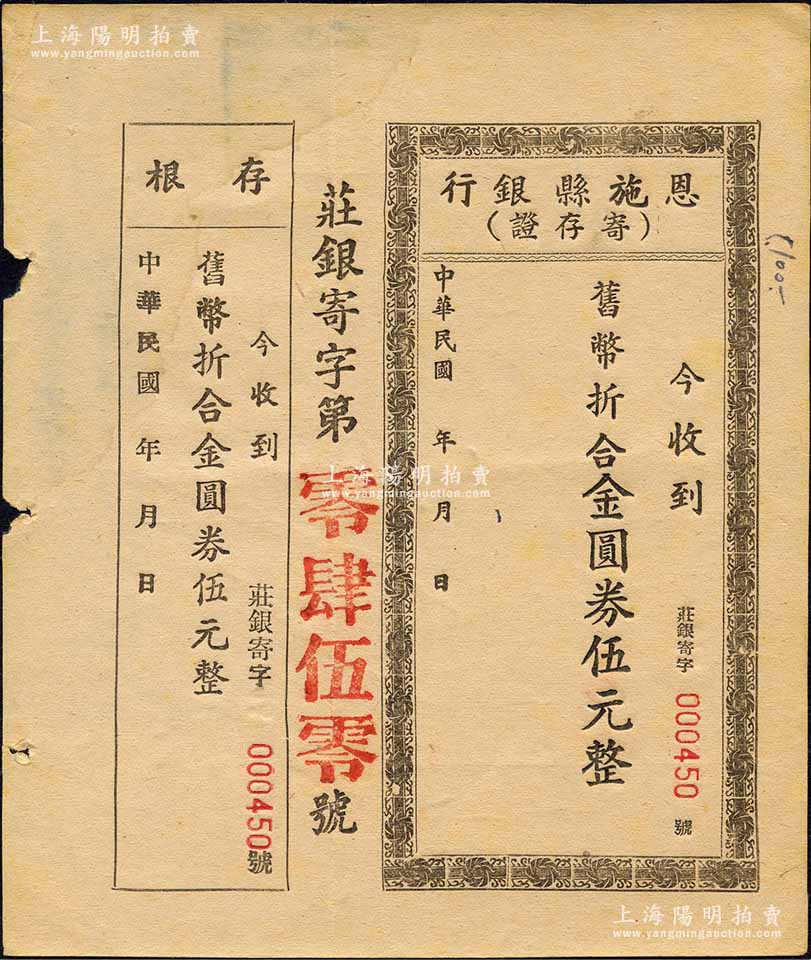 上海陽明拍賣
www.yangmingauction.com
上海陽明拍賣
www.yangmingauction.com
恩施縣銀行
（寄存證）
今收到
莊銀寄字 000450 號
舊幣折合金圓券伍元整
中華民國 年 月 日
莊銀寄字第零肆伍零號
存根
今收到
莊銀寄字 000450 號
舊幣折合金圓券伍元整
中華民國 年 月 日
上海陽明拍賣
www.yangmingauction.com
上海陽明拍賣
www.yangmingauction.com